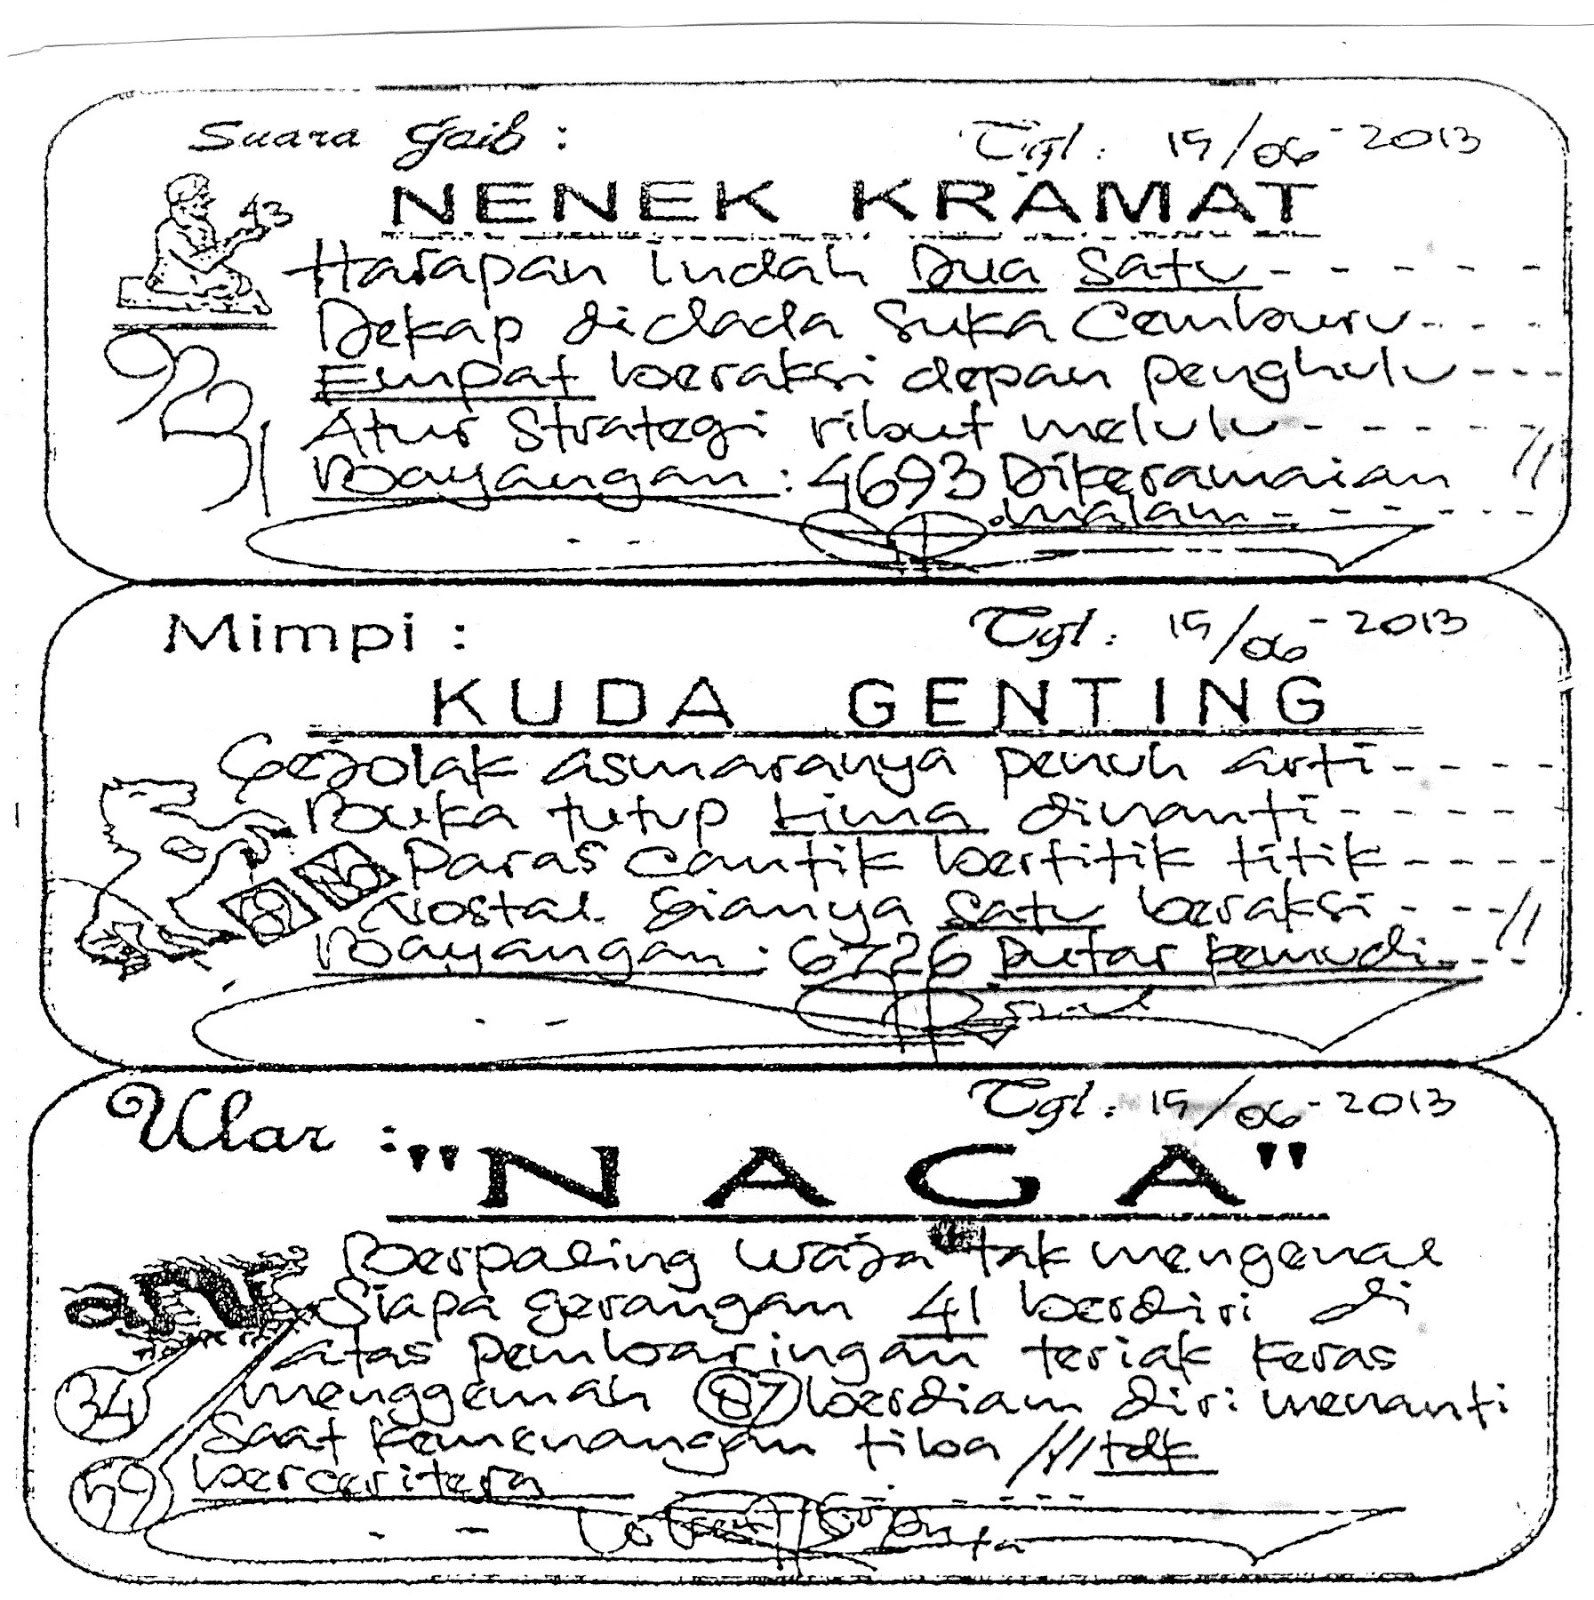 Suara Gaib : Tgl : 15/06-2013
NENEK KRAMAT
43
Harapan indah Dua Satu - - - - -
Dekap didada Suka Cemburu - - -
Empat beraksi depan penghulu - - -
Atur Strategi ribut melulu - - - - - //
Bayangan : 4693 Dikeramaian
malam - - - - - -
Mimpi : Tgl : 15/06-2013
KUDA GENTING
Gejolak asmaranya penuh arti - - - -
Buka tutup Lima dinanti - - - - -
Paras cantik bertitik titik - - - -
Nostal gianya Satu beraksi - - - //
Bayangan : 6726 putar kemudi - - -
Ular : Tgl : 15/06-2013
"NAGA"
Berpaling waja tak mengenal
Siapa gerangan 41 berdiri di
atas pembaringan teriak keras
34 menggemah 87 berdiam diri menanti
Saat kemenangan tiba /// tdk
59 berceritera